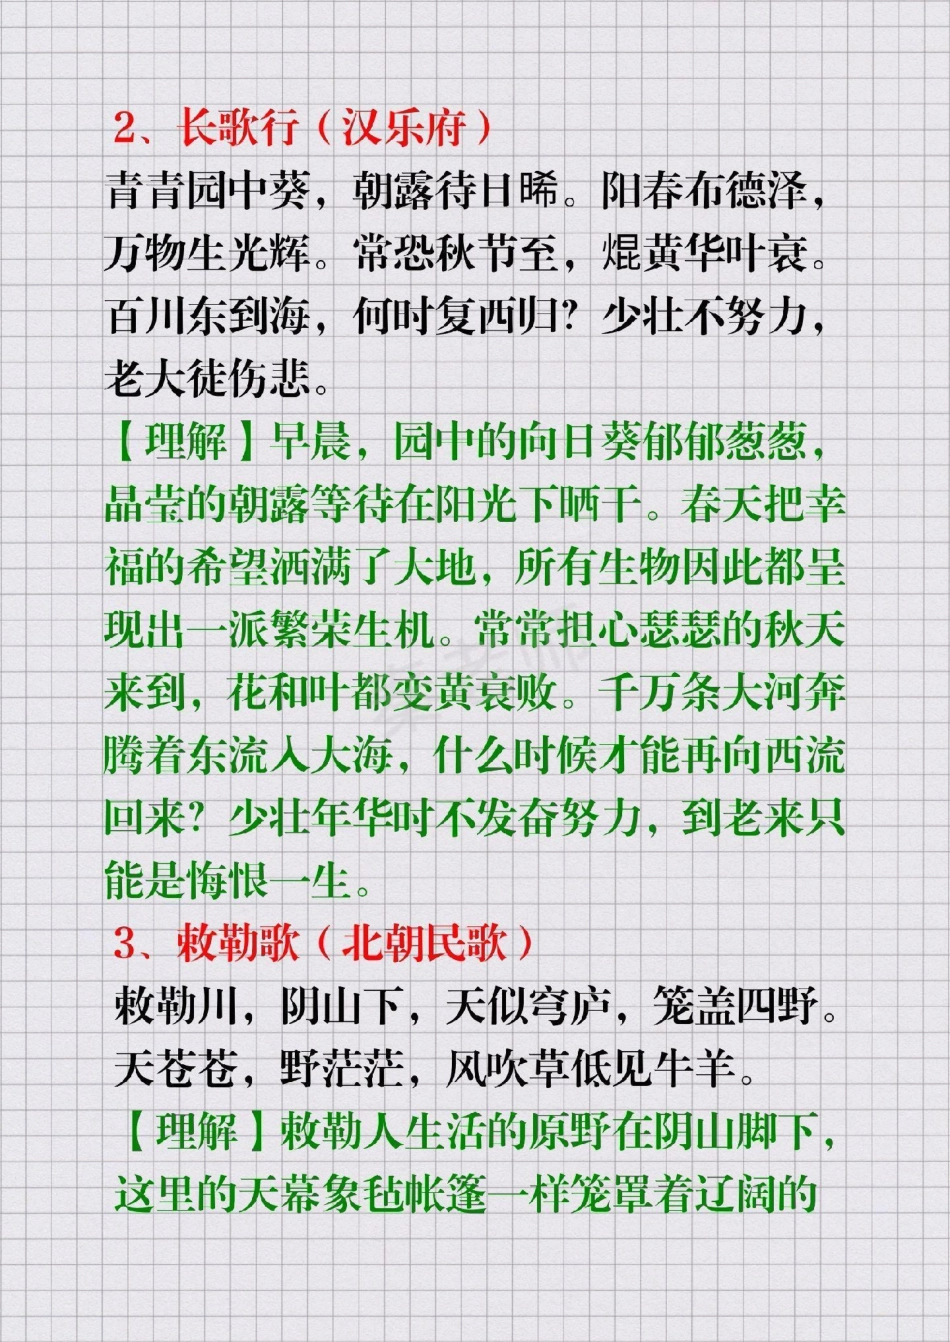 2、长歌行（汉乐府）
青青园中葵，朝露待日晞。阳春布德泽，
万物生光辉。常恐秋节至，焜黄华叶衰。
百川东到海，何时复西归？少壮不努力，
老大徒伤悲。
【理解】早晨，园中的向日葵郁郁葱葱，
晶莹的朝露等待在阳光下晒干。春天把幸
福的希望洒满了大地，所有生物因此都呈
现出一派繁荣生机。常常担心瑟瑟的秋天
来到，花和叶都变黄衰败。千万条大河奔
腾着东流入大海，什么时候才能再向西流
回来？少壮年华时不发奋努力，到老来只
能是悔恨一生。
3、敕勒歌（北朝民歌）
敕勒川，阴山下，天似穹庐，笼盖四野。
天苍苍，野茫茫，风吹草低见牛羊。
【理解】敕勒人生活的原野在阴山脚下，
这里的天幕象毡帐篷一样笼罩着辽阔的